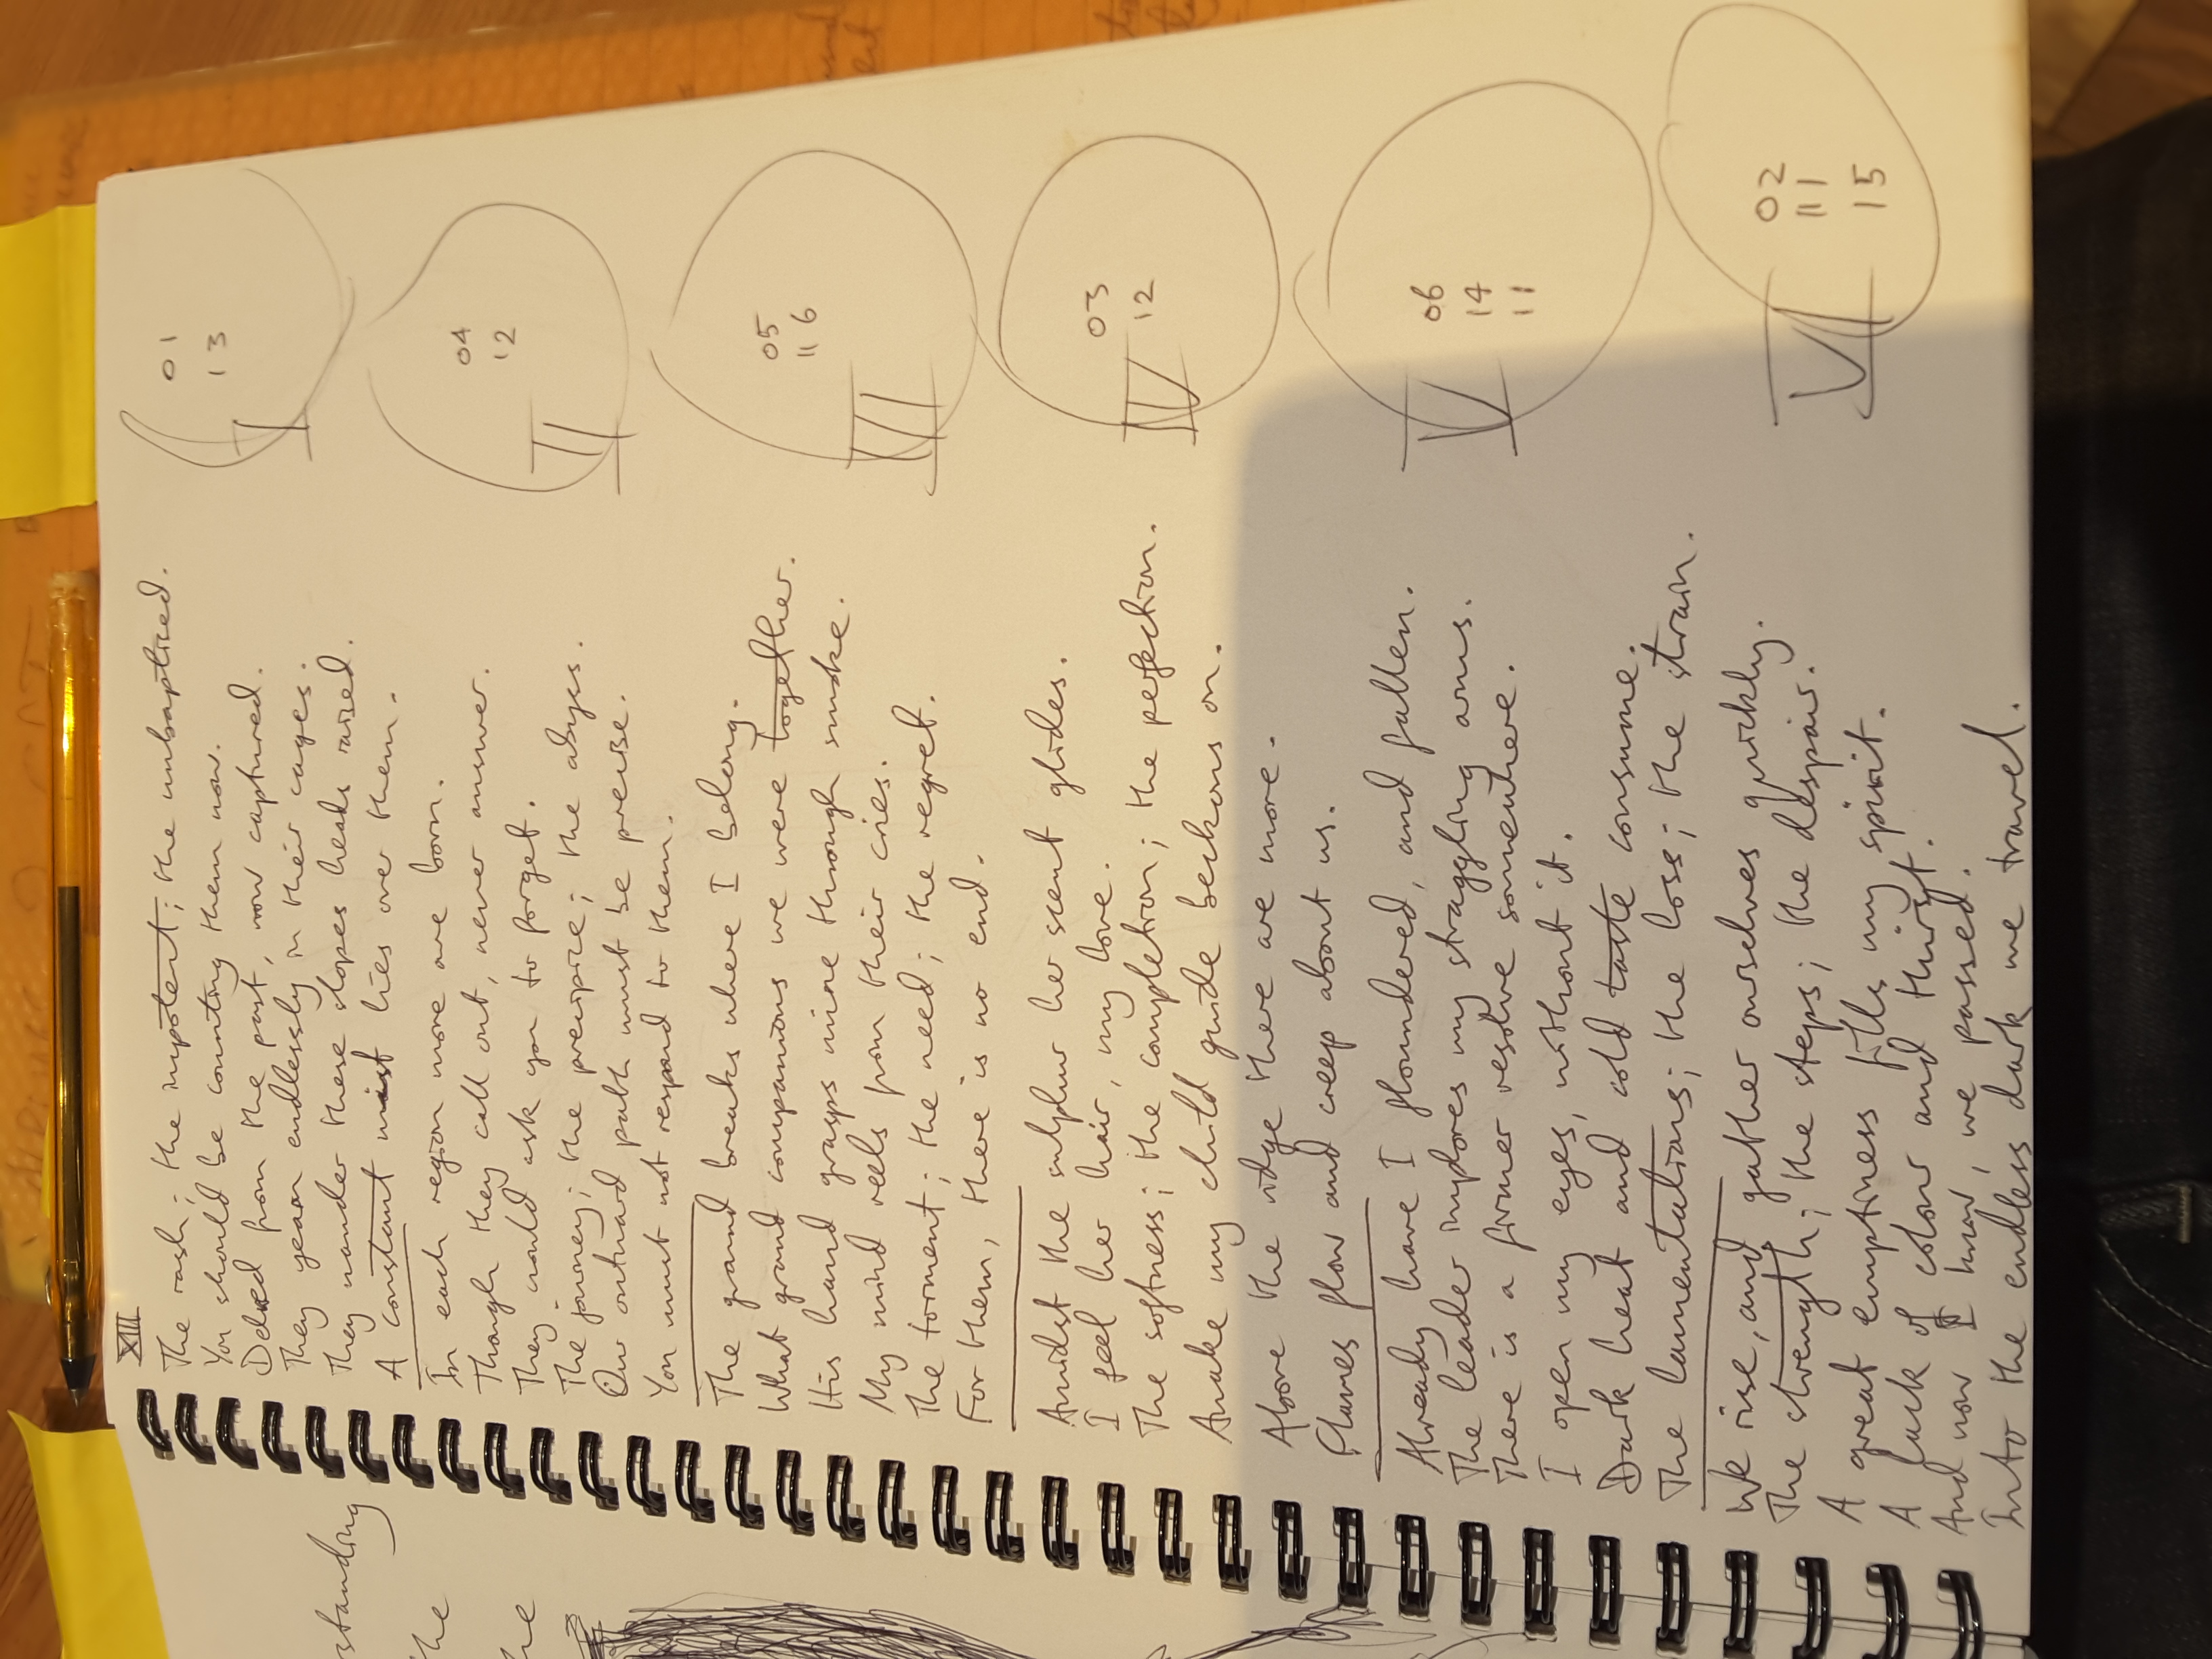 XIII
The rash; the impotent; the unbaptised.
You should be counting them now.
Delved from the past, now captured.
They yearn endlessly in their cages.
They wander these slopes heads raised.
A constant mist lies over them.
In each region more are born.
Though they call out, never answer.
They would ask you to forget.
The journey; the precipice; the abyss.
Our outward path must be precise.
You must not respond to them.
The ground breaks where I belong.
What grand companions we were together.
His hand grasps mine through smoke.
My mind reels from their cries.
The torment; the need; the regret.
For them, there is no end.
Amidst the sulphur her scent glides.
I feel her hair, my love.
The softness; the completion; the perfection.
Awake my child guide beckons on.
Above the ridge there are more.
Flames flow and creep about us.
Already have I floundered, and fallen.
The leader implores my straggling arms.
There is a firmer resolve somewhere.
I open my eyes, without it.
Dark heat and cold taste consume.
The lamentations; the loss; the strain.
We rise, and gather ourselves quickly.
The strength; the steps; the despair.
A great emptiness fills my spirit.
A lack of colour and thirst.
And now I know, we passed.
Into the endless dark we travel.
01
13
I
04
12
II
05
11 6
III
03
12
IV
06
14
11
V
02
111
15
VI
standing
the
he